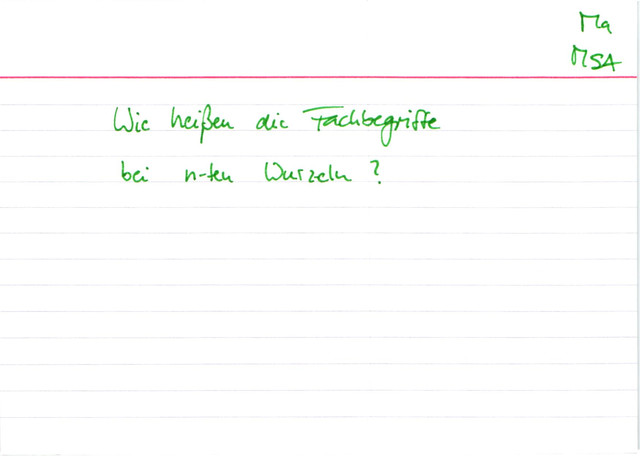 Ma
MSA
Wie heißen die Fachbegriffe
bei n-ten Wurzeln?